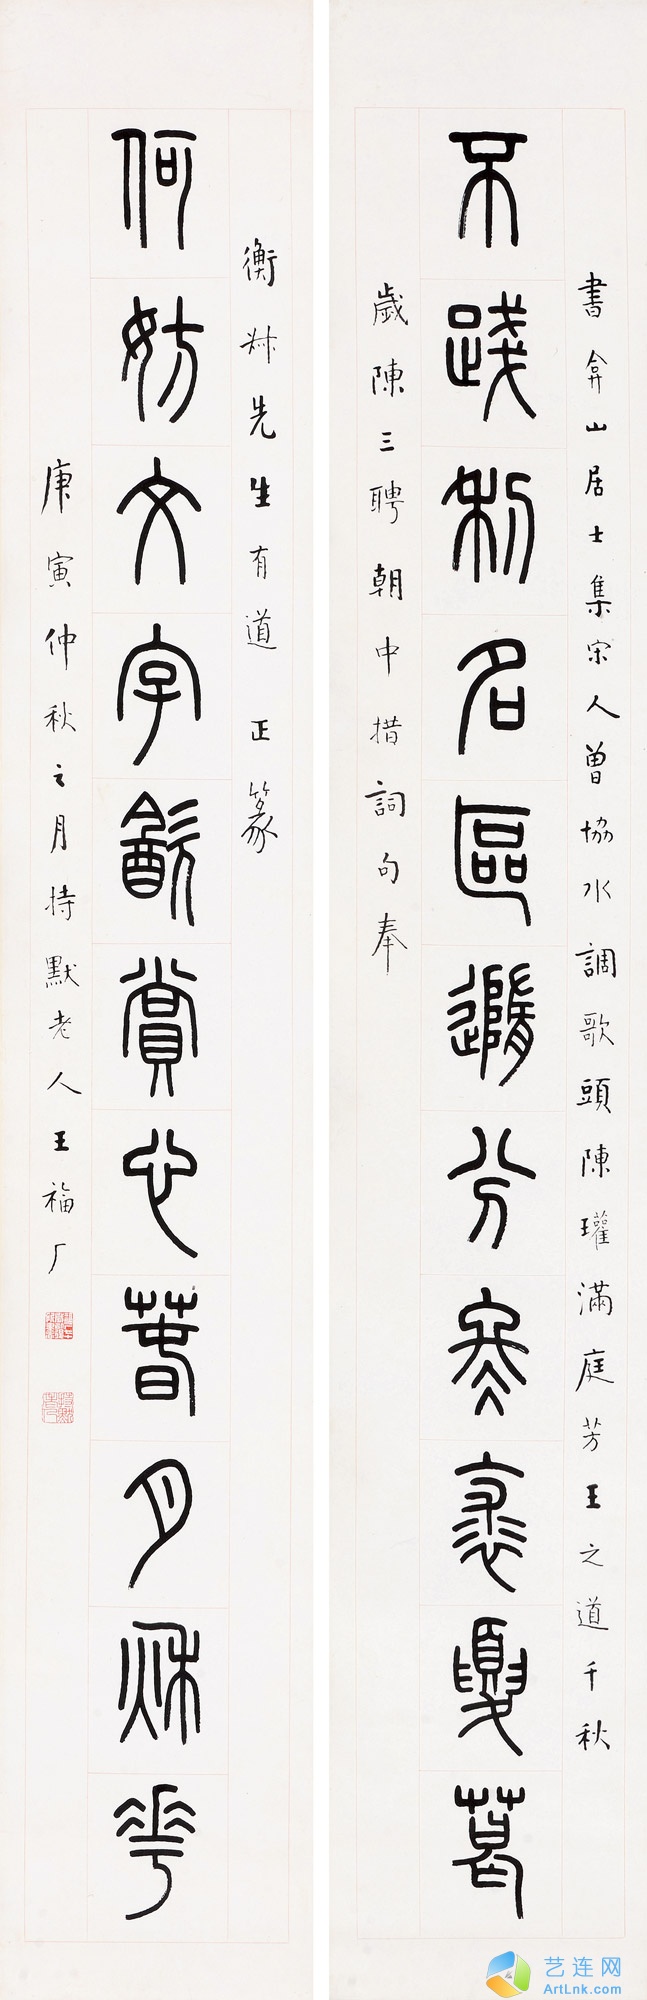 書弇山居士集宋人曾協水調歌頭陳瓘滿庭芳王之道千秋
不踐利名區隨分冬裘夏葛
歲陳三聘朝中措詞句奉
衡尗先生有道 正篆
何妨文字飲賞心春月秋花
庚寅仲秋之月持默老人王福厂
艺连网
ArtLnk.com